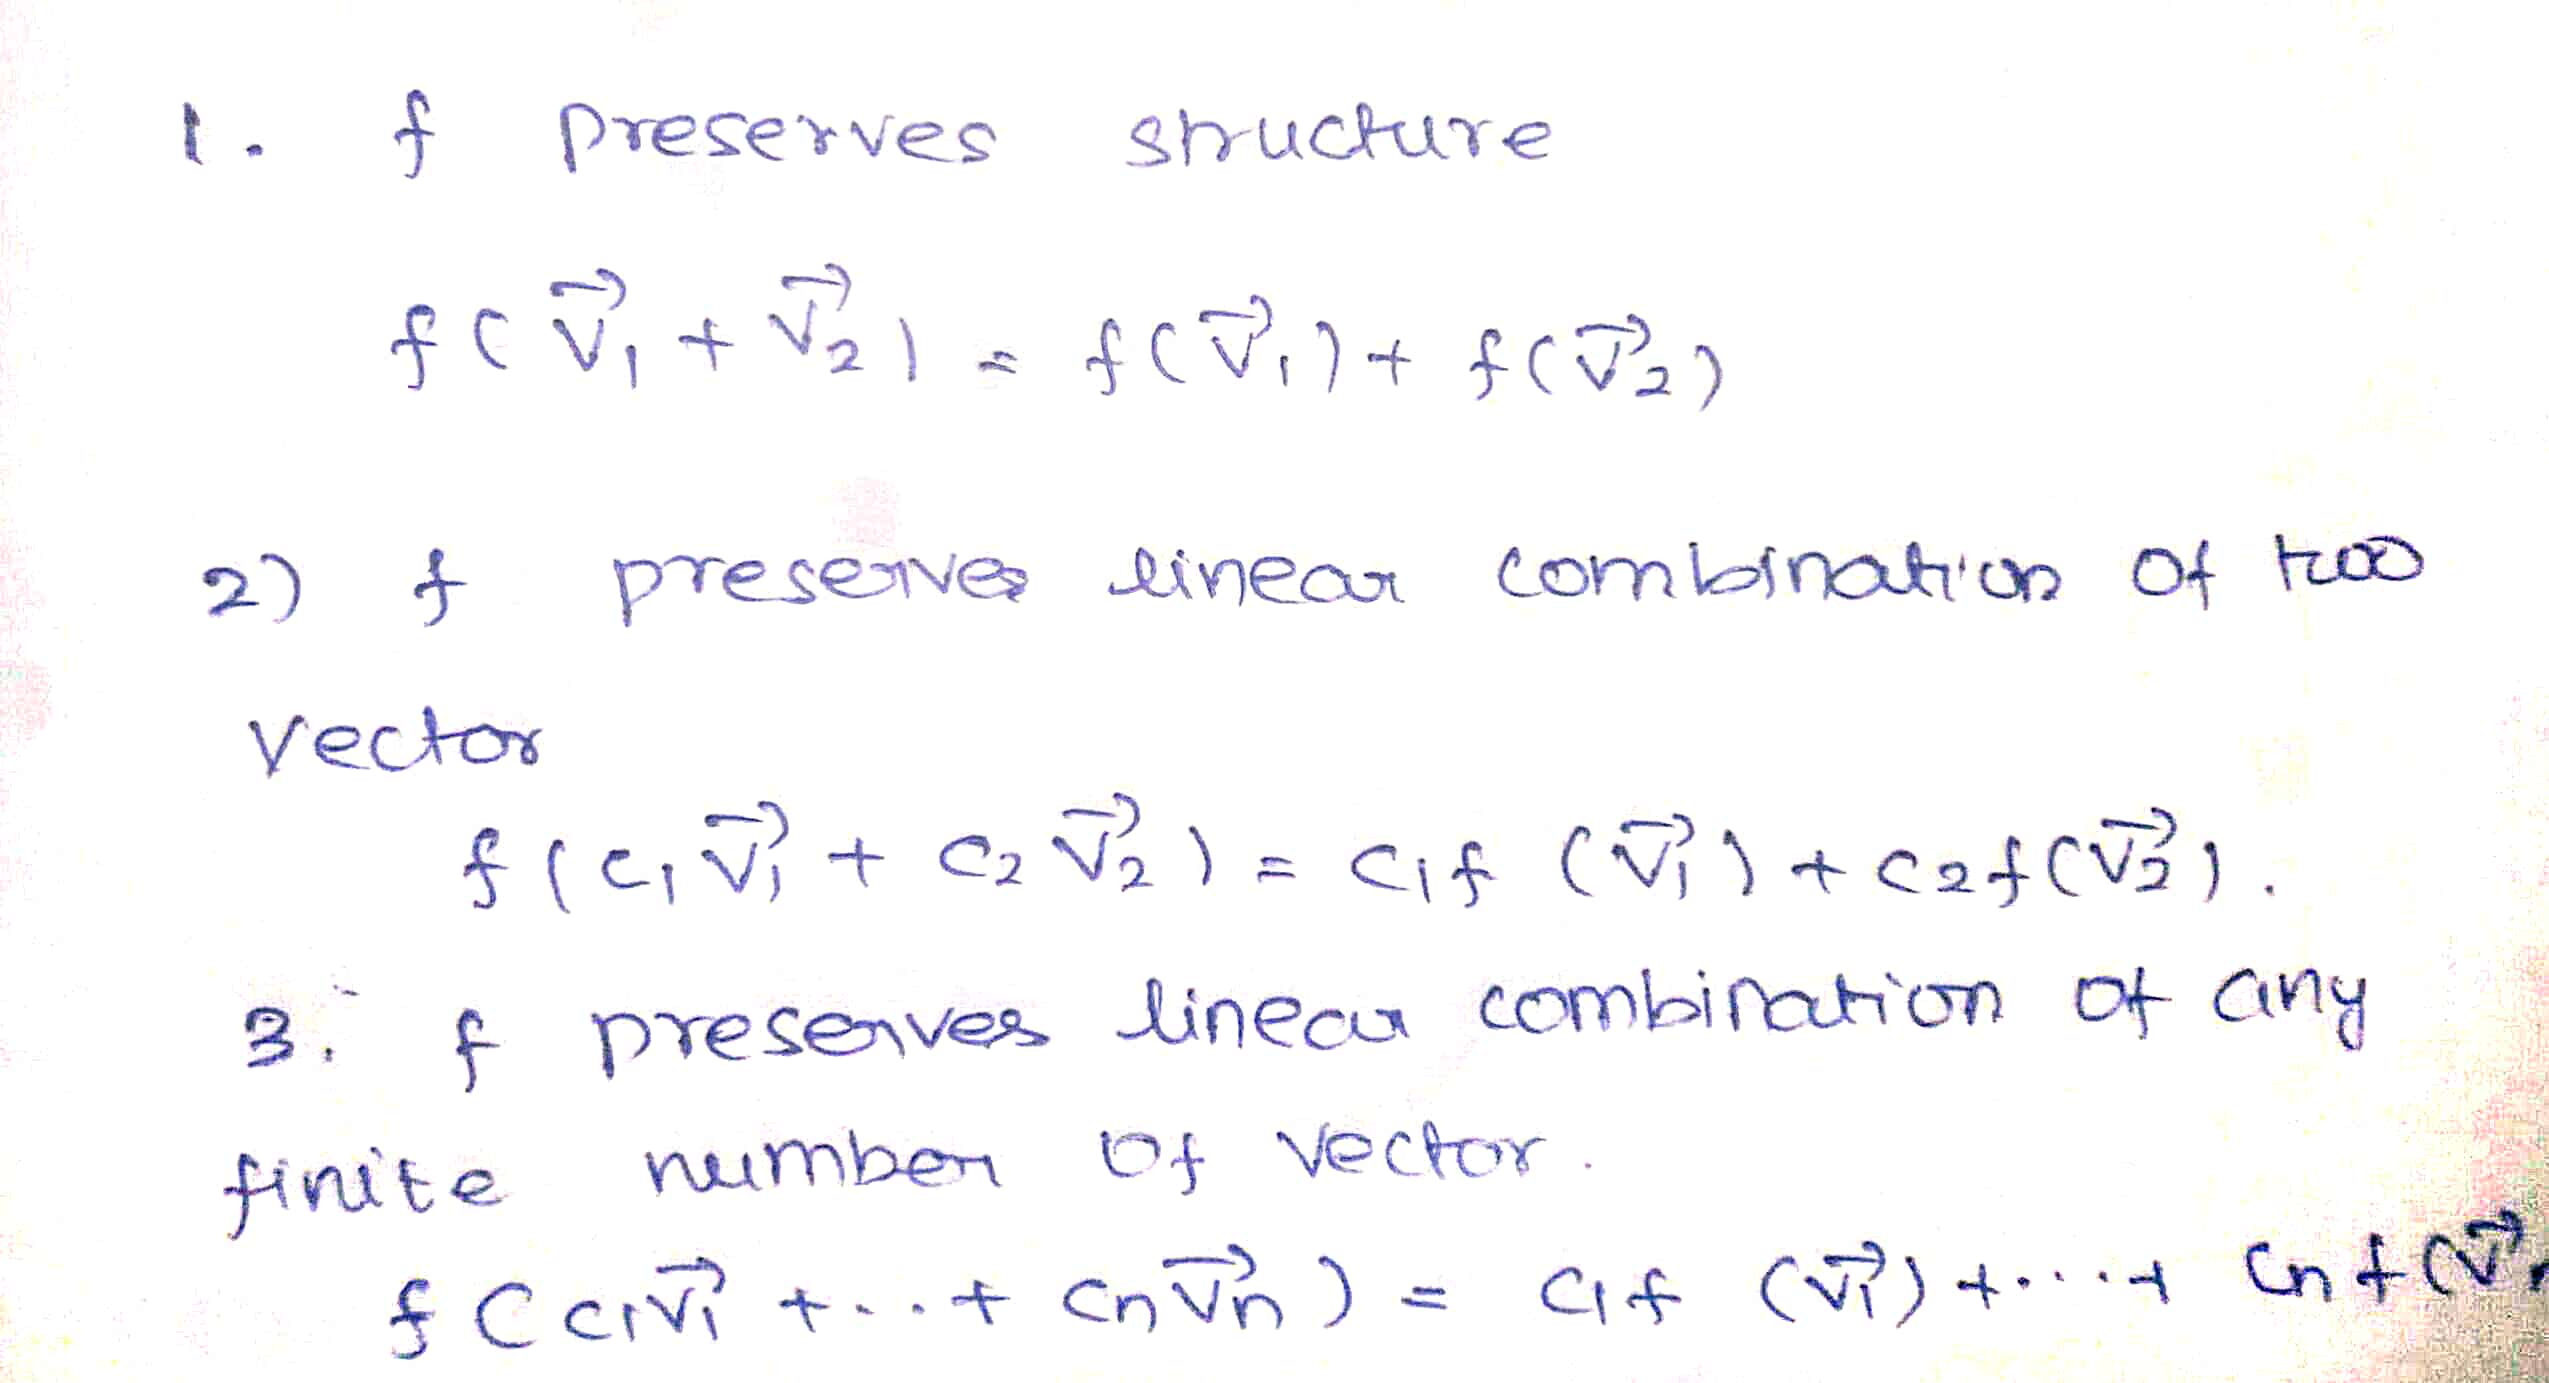 1. f preserves structure
f(v⃗₁ + v⃗₂) = f(v⃗₁) + f(v⃗₂)
2) f preserves linear combination of two
vector
f(c₁v⃗₁ + c₂v⃗₂) = c₁f (v⃗₁) + c₂f(v⃗₂).
3. f preserves linear combination of any
finite number of vector.
f(c₁v⃗₁ + ... + cₙv⃗ₙ) = c₁f (v⃗₁) + .... + cₙf(v⃗ₙ